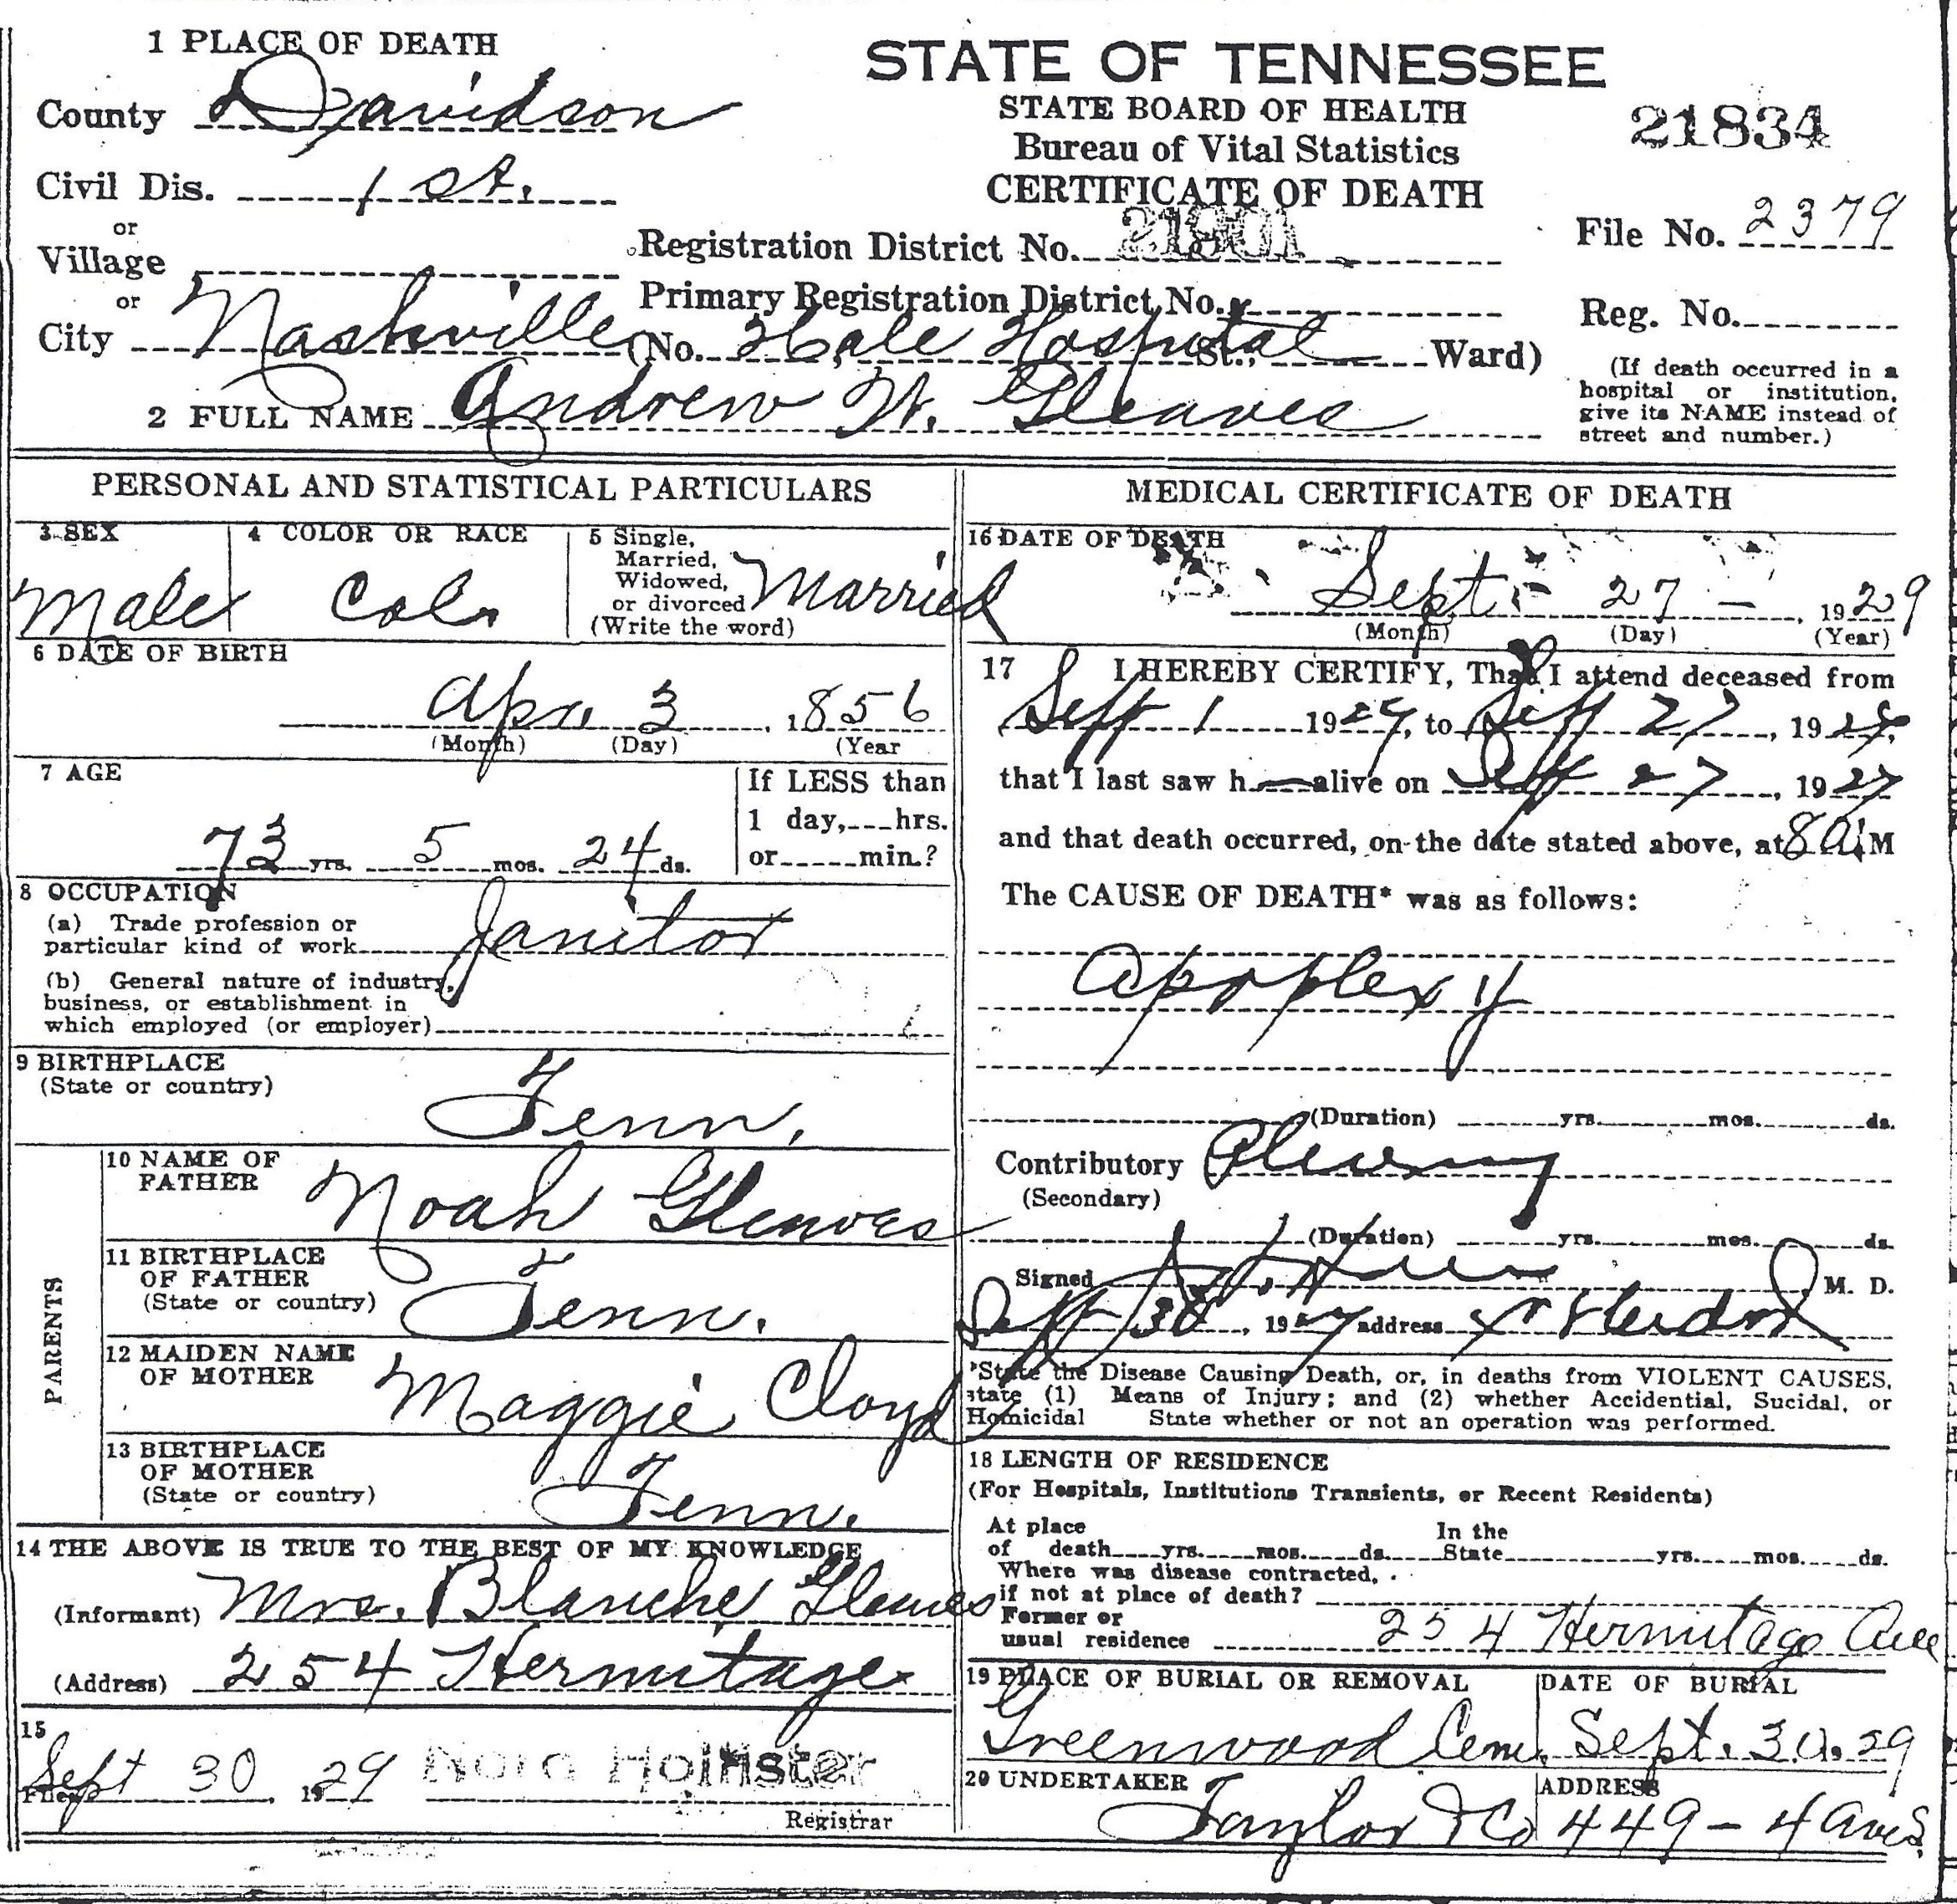 1 PLACE OF DEATH
STATE OF TENNESSEE
STATE BOARD OF HEALTH
Bureau of Vital Statistics
CERTIFICATE OF DEATH
21834
County Davidson
Civil Dis. 1 st.
or
Village
or
City Nashville (No. Hale Hospital St.; Ward)
Registration District No. 21901
Primary Registration District No.
File No. 2379
Reg. No.
(If death occurred in a
hospital or institution,
give its NAME instead of
street and number.)
2 FULL NAME Andrew W. Gleaves
PERSONAL AND STATISTICAL PARTICULARS
3 SEX
Male
4 COLOR OR RACE
Col.
5 Single,
Married,
Widowed,
or divorced
(Write the word)
Married
6 DATE OF BIRTH
Apr. 3, 1856
(Month) (Day) (Year
7 AGE
73 yrs. 5 mos. 24 ds.
If LESS than
1 day, hrs.
or min.?
8 OCCUPATION
(a) Trade profession or
particular kind of work Janitor
(b) General nature of industry,
business, or establishment in
which employed (or employer)
9 BIRTHPLACE
(State or country)
Tenn.
PARENTS
10 NAME OF
FATHER
Noah Gleaves
11 BIRTHPLACE
OF FATHER
(State or country)
Tenn.
12 MAIDEN NAME
OF MOTHER
Maggie Cloyd
13 BIRTHPLACE
OF MOTHER
(State or country)
Tenn.
14 THE ABOVE IS TRUE TO THE BEST OF MY KNOWLEDGE
(Informant) Mrs. Blanche Gleaves
(Address) 254 Hermitage
15
Filed Sept 30, 1929 Nora Hollister
Registrar
MEDICAL CERTIFICATE OF DEATH
16 DATE OF DEATH
Sept - 27 - , 1929
(Month) (Day) (Year)
17 I HEREBY CERTIFY, That I attend deceased from
Sept 1 1929, to Sept 27, 1929,
that I last saw h alive on Sept 27, 1929
and that death occurred, on the date stated above, at 8 A. M
The CAUSE OF DEATH* was as follows:
Apoplexy
(Duration) yrs. mos. ds.
Contributory Pleurisy
(Secondary)
(Duration) yrs. mos. ds.
Signed M. D.
Sept 30, 1929 address
*State the Disease Causing Death, or, in deaths from VIOLENT CAUSES,
state (1) Means of Injury; and (2) whether Accidential, Sucidal, or
Homicidal State whether or not an operation was performed.
18 LENGTH OF RESIDENCE
(For Hospitals, Institutions Transients, or Recent Residents)
At place
of death yrs. mos. ds.
In the
State yrs. mos. ds.
Where was disease contracted,
if not at place of death?
Former or
usual residence 254 Hermitage Ave
19 PLACE OF BURIAL OR REMOVAL
Greenwood Cem.
DATE OF BURIAL
Sept. 30. 29
20 UNDERTAKER
Taylor & Co
ADDRESS
449 - 4 Ave S.